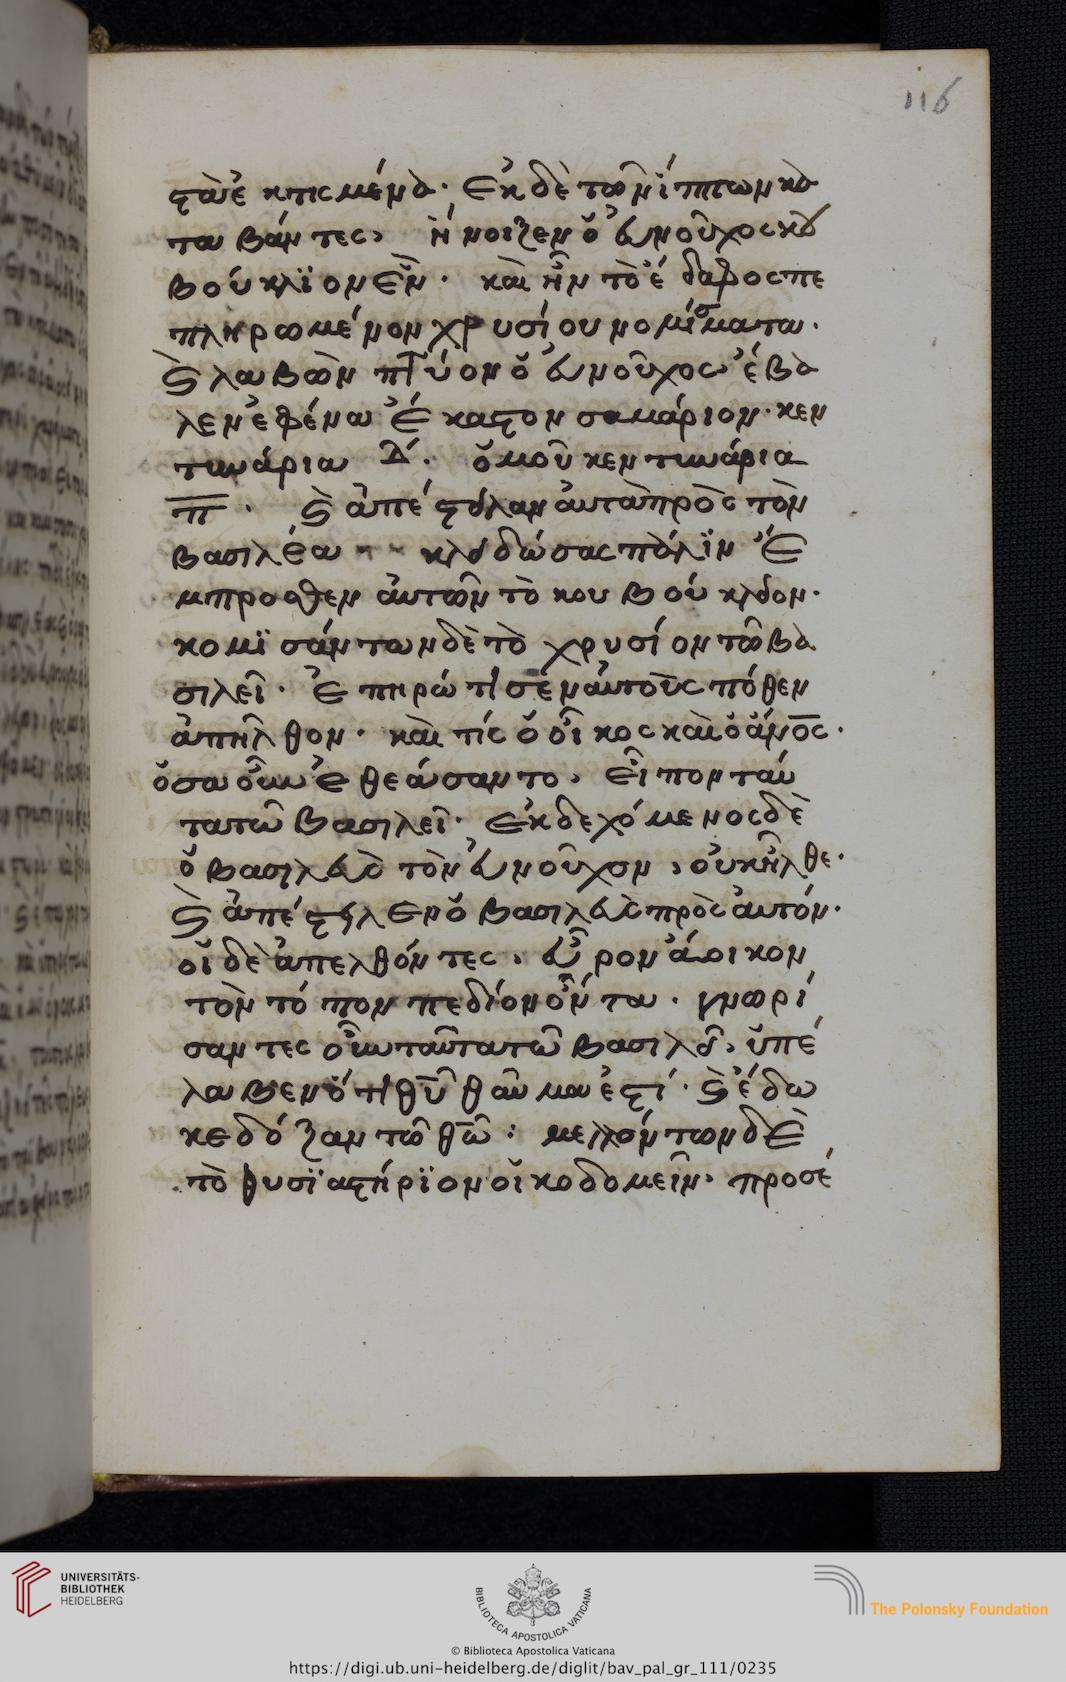 116
στὰ ἐκτισμένα· Ἐκ δὲ τῶν ἵππων κα
ταβάντες, ἤνοιξεν ὁ εὐνοῦχος κου
βούκλϊον ἕν· καὶ ἦν τὸ ἔδαφος πε
πληρωμένον χρυσίου νομίσματα·
Ϛ λαβὼν πτύον ὁ εὐνοῦχος ἔβα
λεν ἐφ ένα ἕκαστον σαμάριον· κεν
τινάρια Δ. ὁμοῦ κεντινάρια
π· Ϛ ἀπέστειλαν αὐτὰ πρὸς τὸν
βασιλέα κλειδώσας πάλϊν ἔ
μπροσθεν αὐτῶν τὸ κουβούκλειον·
κομϊσάντων δὲ τὸ χρυσίον τῶ βα
σιλεῖ· Ἐπηρώτησεν αὐτοὺς πόθεν
ἀπῆλθον· καὶ τίς ὁ οἶκος καὶ ὁ ἄνος·
ὅσα οὖν ἐθεάσαντο, Εἶπον ταύ
τα τῶ βασιλεῖ· Ἐκδεχόμενος δὲ
ὁ βασιλεὺς τὸν εὐνοῦχον, οὐκ ἦλθε·
Ϛ ἀπέστειλεν ὁ βασιλεὺς πρὸς αὐτόν·
οἱ δὲ ἀπελθόντες, εὗρον ἄοικον
τὸν τόπον πεδίον ὄντα· γνωρί
σαντες οὖν ταῦτα τῶ βασιλεῖ, ὑπέ
λαβεν ὅτι θυ θαῦμα ἐστί· Ϛ ἔδω
κε δόξαν τῶ θῶ: μελλόντων δὲ
τὸ θυσϊαστήρϊον οἰκοδομεῖν, προσέ
UNIVERSITÄTS-
BIBLIOTHEK
HEIDELBERG
BIBLIOTECA APOSTOLICA VATICANA
The Polonsky Foundation
© Biblioteca Apostolica Vaticana
https://digi.ub.uni-heidelberg.de/diglit/bav_pal_gr_111/0235